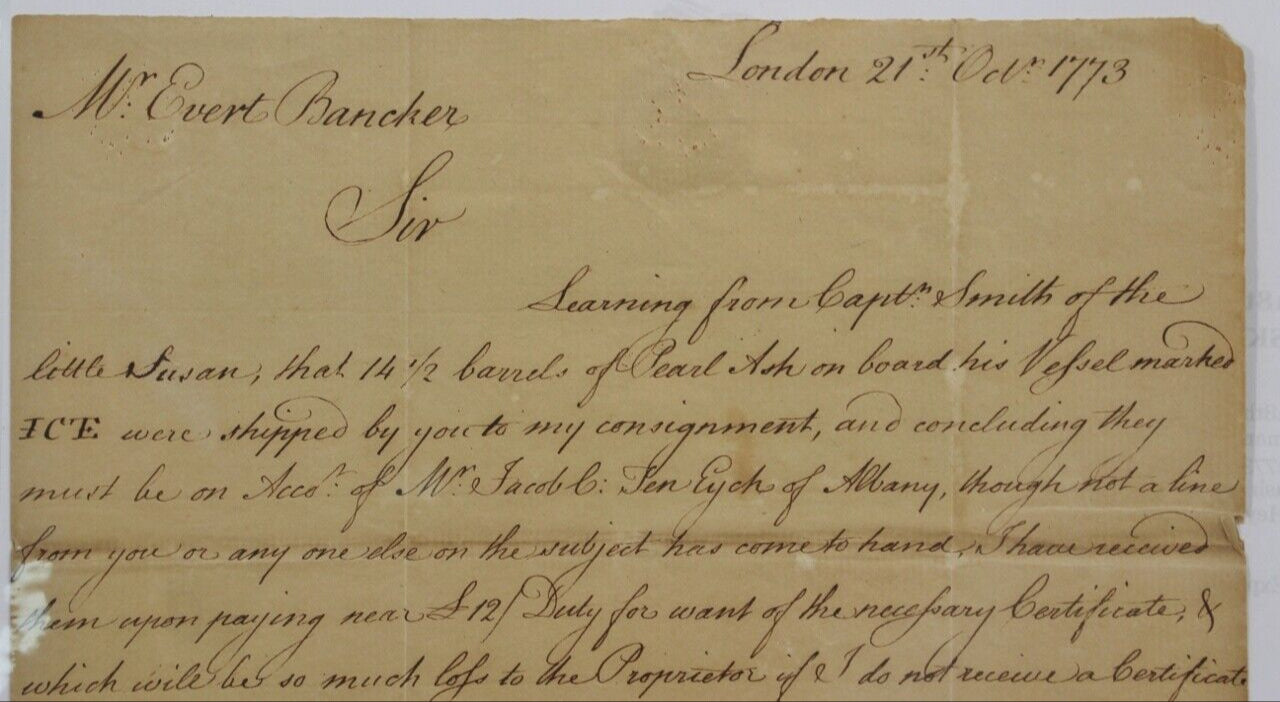 London 21st. Octr. 1773
Mr. Evert Bancker
Sir
Learning from Captn. Smith of the
little Susan, that 14 1/2 barrels of Pearl Ash on board his Vessel marked
ICTE were shipped by you to my consignment, and concluding they
must be on Accot. of Mr. Jacob C: Ten Eyck of Albany, though not a line
from you or any one else on the subject has come to hand, I have received
them upon paying near £12/ Duty for want of the necessary Certificate, &
which will be so much loss to the Proprietor if I do not receive a Certificate